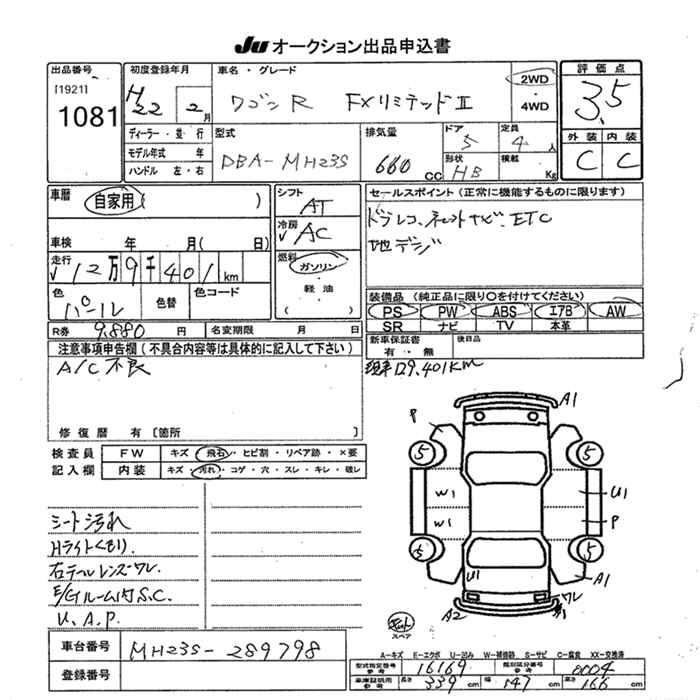 JU オークション出品申込書
出品番号 初度登録年月 車名・グレード 評価点
[1921] H22 2月 ワゴンR FXリミテッドII 2WD・4WD 3.5
1081
ディーラー・並行 型式 排気量 ドア 定員 外装 内装
モデル年式 年 DBA-MH23S 660CC 5 4人 C C
ハンドル 左・右 形状 HB 積載 Kg
車歴 自家用( ) シフト AT セールスポイント(正常に機能するものに限ります)
車検 年 月( 日) 冷房 AC ドラレコ、ネットナビ、ETC
走行 12万9千401km 燃料 ガソリン・軽油・( ) 地デジ
色 パール 色替 色コード 装備品(純正品に限り○を付けてください)
PS PW ABS エアB AW
R券 9,880円 名変期限 月 日 SR ナビ TV 本革
注意事項申告欄(不具合内容等は具体的に記入して下さい) 新車保証書 有・無 後日品
A/C不良 現車129,401KM
修復歴 有[箇所 ]
検査員 FW キズ・飛石・ヒビ割・リペア跡・×要
記入欄 内装 キズ・汚れ・コゲ・穴・スレ・キレ・破レ
シート汚れ
Hライトくもり.
右テールレンズワレ.
E/Gルーム内S.C.
U.A.P.
A1
P
5 5
W1 U1
W1 P
5 5
U1 A1
ワレ
A2
スペア
A-キズ E-エクボ U-凹み W-補修跡 S-サビ C-腐食 XX-交換済
車台番号 MH23S-289798
型式指定番号 参考 16169 類別区分番号 参考 0004
登録番号 車庫証明用 参考 長さ 339cm 幅 147cm 高さ 166cm